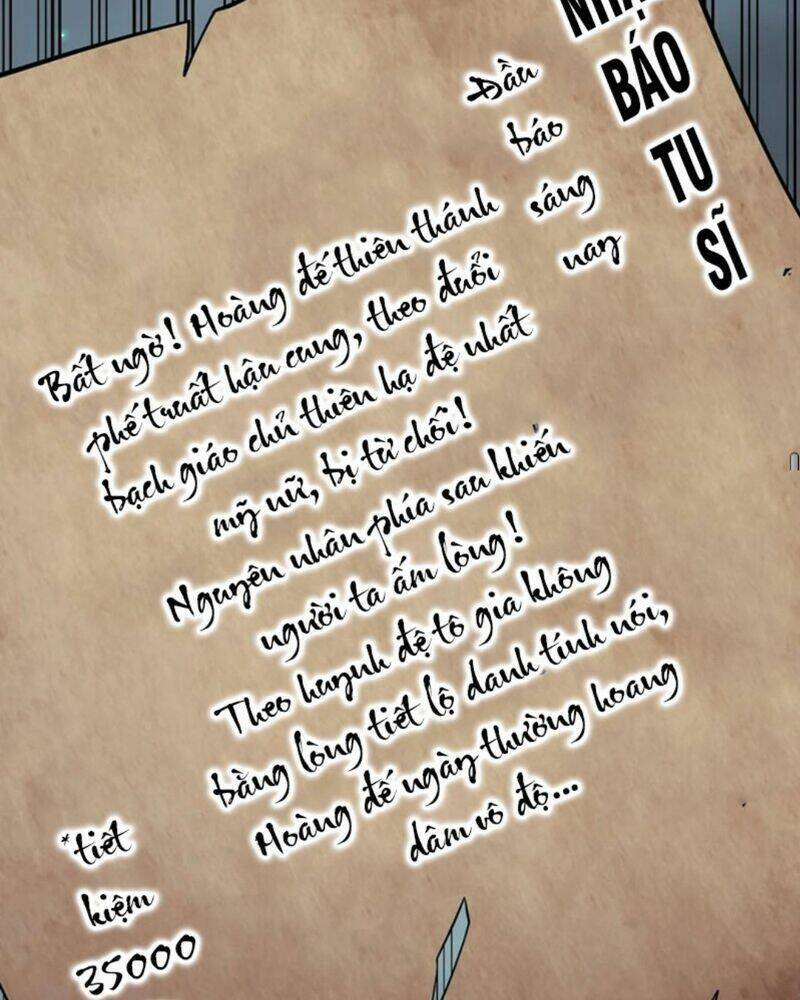 NHẬT
BÁO
TU
SĨ
Đầu
báo
sáng
nay
Bất ngờ! Hoàng đế thiên thánh
phế truất hậu cung, theo đuổi
bạch giáo chủ thiên hạ đệ nhất
mỹ nữ, bị từ chối!
Nguyên nhân phía sau khiến
người ta ấm lòng!
Theo huynh đệ tô gia không
bằng lòng tiết lộ danh tính nói,
Hoàng đế ngày thường hoang
dâm vô độ...
*tiết
kiệm
35000